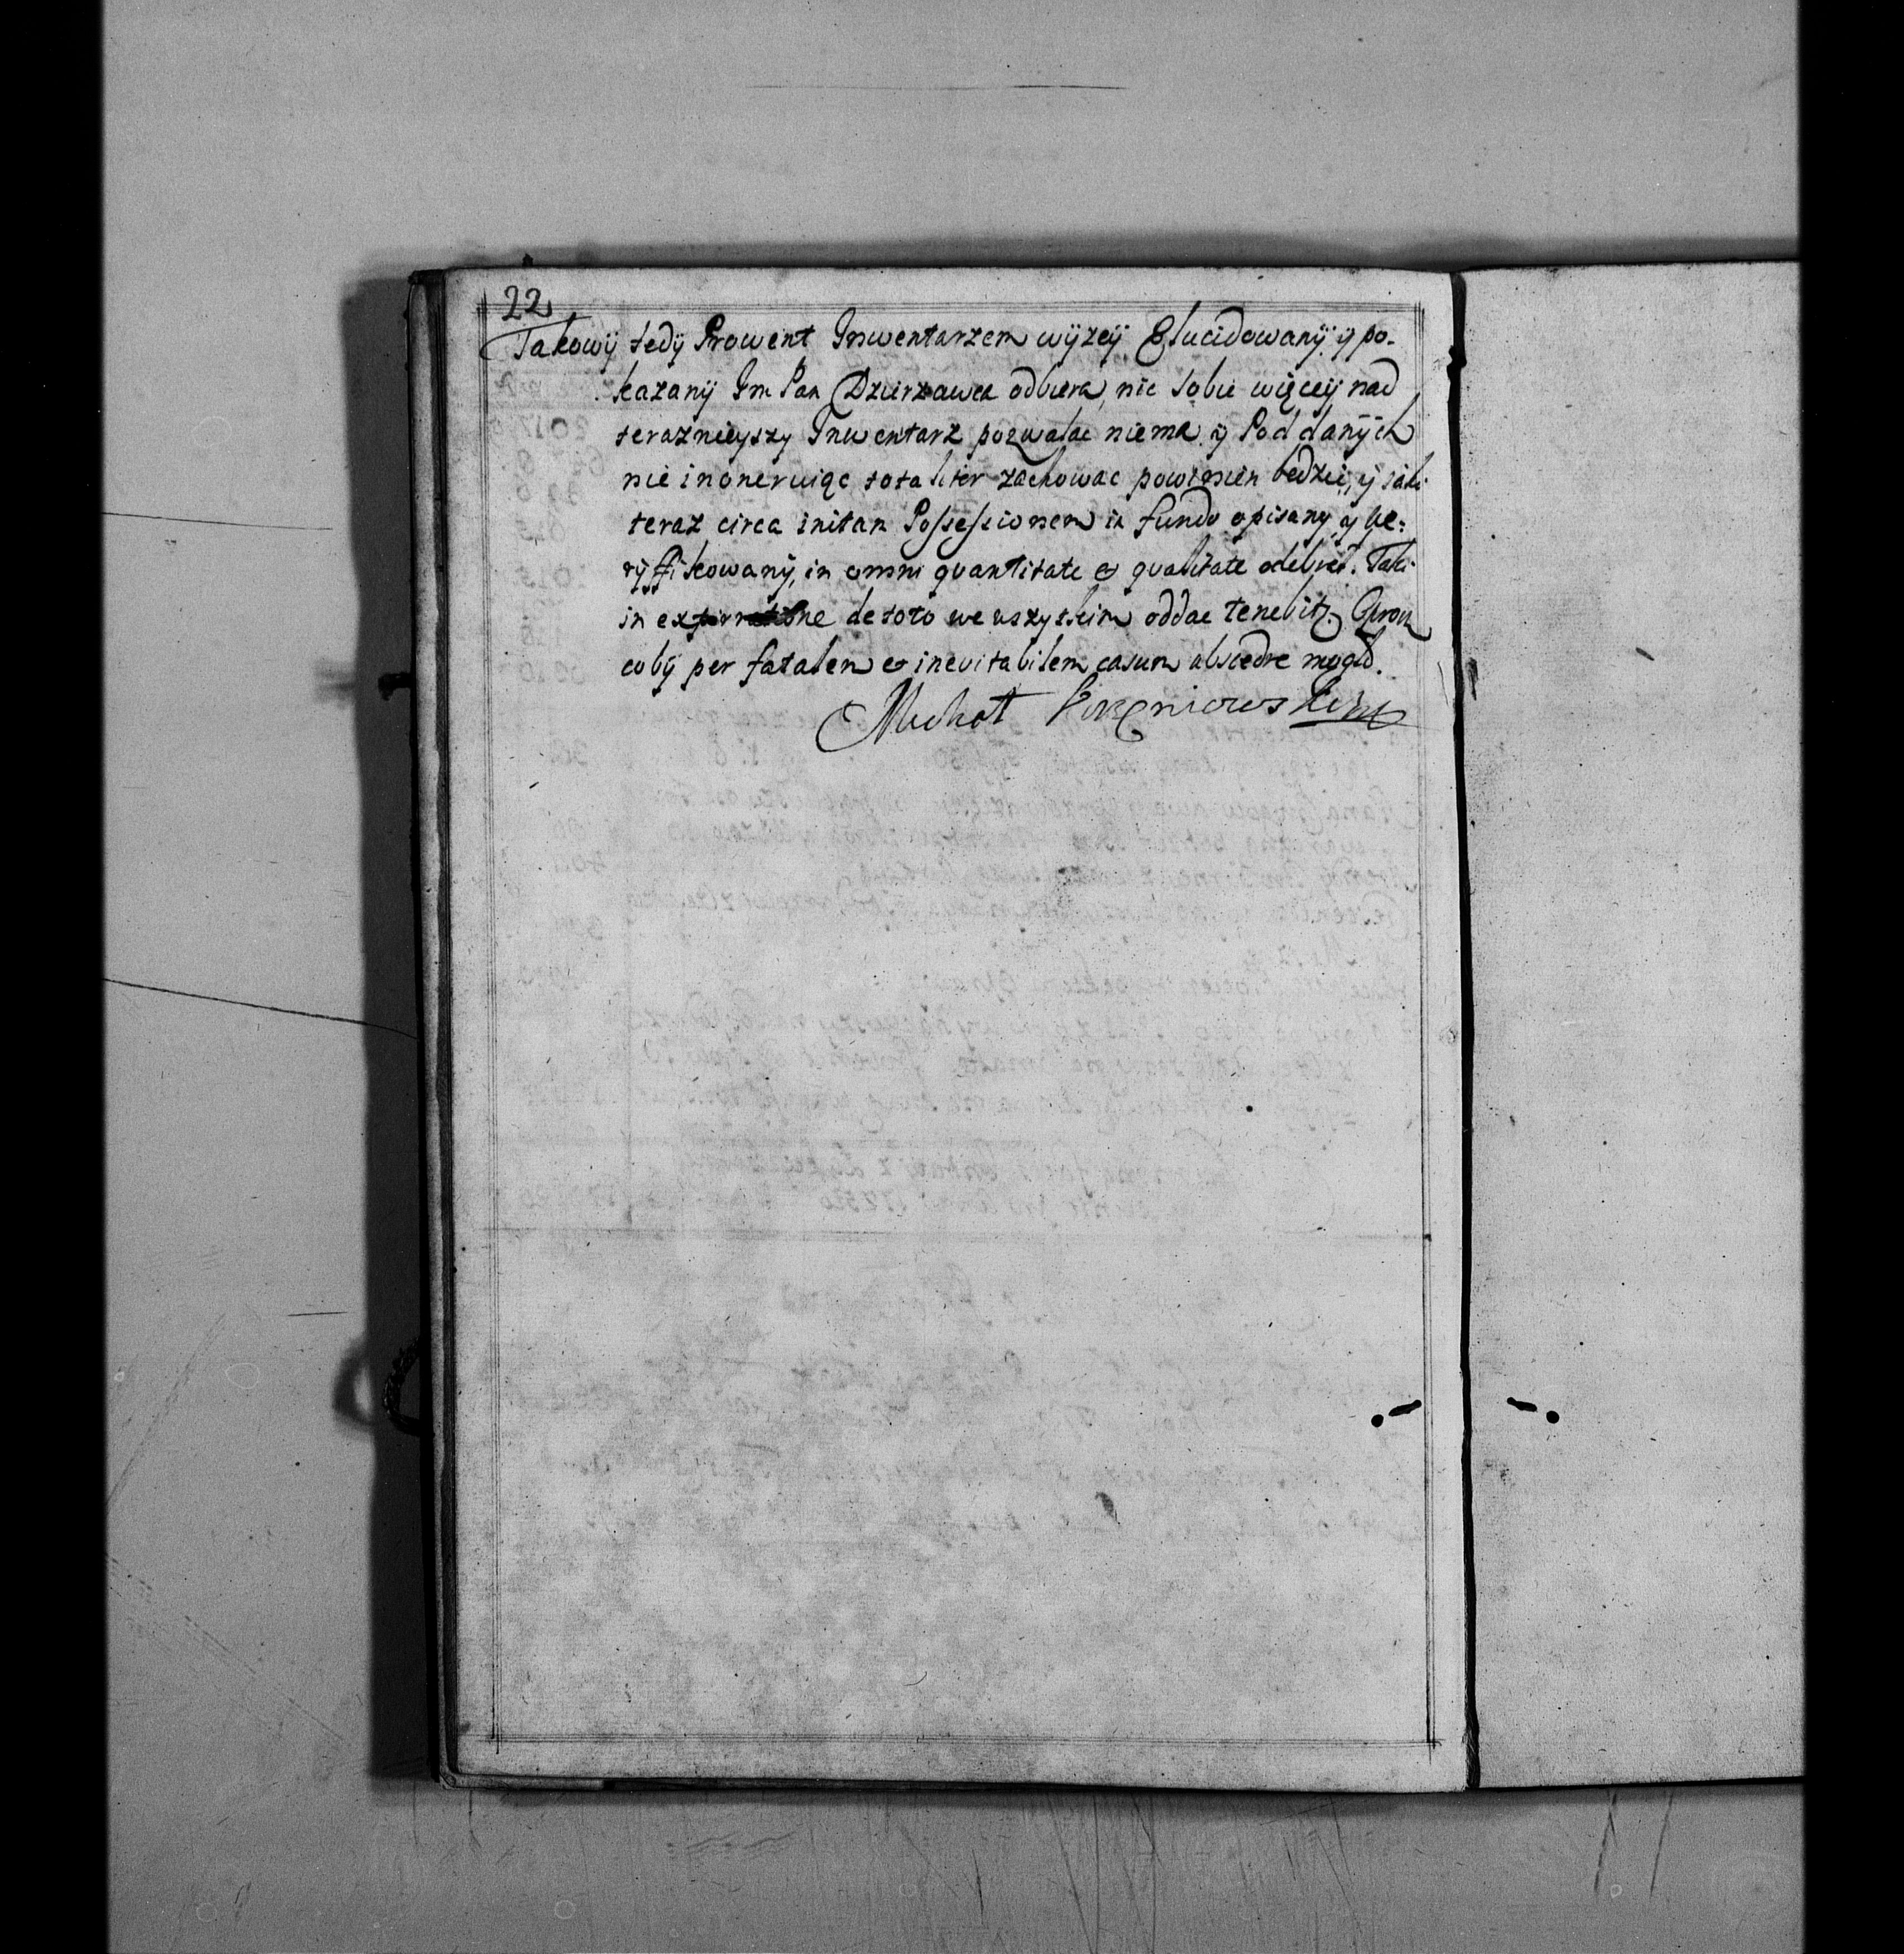 22
Takowÿ tedÿ Prowent Inwentarzem wÿzeÿ Elucidowanÿ ÿ po-
kazanÿ Im Pan Dzierzawca odbiera, nic sobie więceÿ nad
teraznieyszy Inwentarz pozwalac niema ÿ Poddanÿch
nie inoneruiąc totaliter zachowac powinien będzie, ÿ jaki
teraz circa initan Possessionem in fundo opisany ÿ we:
rÿffikowanÿ, in omni quantitate et qualitate odebrał. Taki
in expiratione de toto we wszystkim oddac tenebitz. Oprocz
cobÿ per fatalem et inevitabilem casum abscedre mogło.
Michał